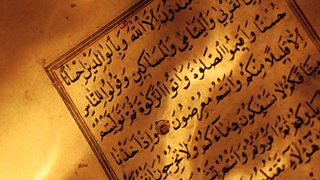 تَعْبُدُونَ إِلَّا اللَّهَ وَبِالْوَالِدَيْنِ إِحْسَانًا
الْقُرْبَى وَالْيَتَامَى وَالْمَسَاكِينِ وَقُولُوا لِلنَّاسِ
حُسْنًا وَأَقِيمُوا الصَّلَوةَ وَآتُوا الزَّكَوةَ ثُمَّ تَوَلَّيْتُمْ
إِلَّا قَلِيلًا مِنْكُمْ وَأَنْتُمْ مُعْرِضُونَ وَإِذْ أَخَذْنَا
مِيثَاقَكُمْ لَا تَسْفِكُونَ دِمَاءَكُمْ وَلَا تُخْرِجُونَ
ثُمَّ أَقْرَرْتُمْ وَأَنْتُمْ
هَؤُلَاءِ